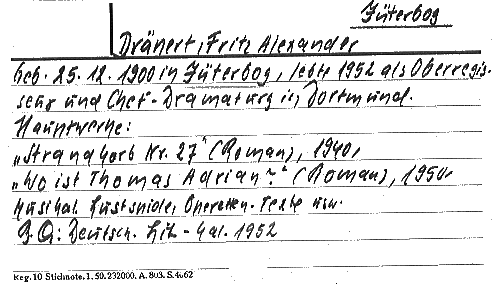 Jüterbog
Dränert, Fritz Alexander
Geb. 25. 12. 1900 in Jüterbog, lebte 1952 als Oberregis-
seur und Chef-Dramaturg in Dortmund.
Hauptwerke:
„Strandkorb Nr. 27" (Roman), 1940,
„Wo ist Thomas Adrian?" (Roman), 1950,
Musikal. Lustspiele, Operetten-Texte usw.
Deutsch. Lit-Kal. 1952
Reg. 10 Stichnote. 1. 50. 232000. A. 803. S. 4662